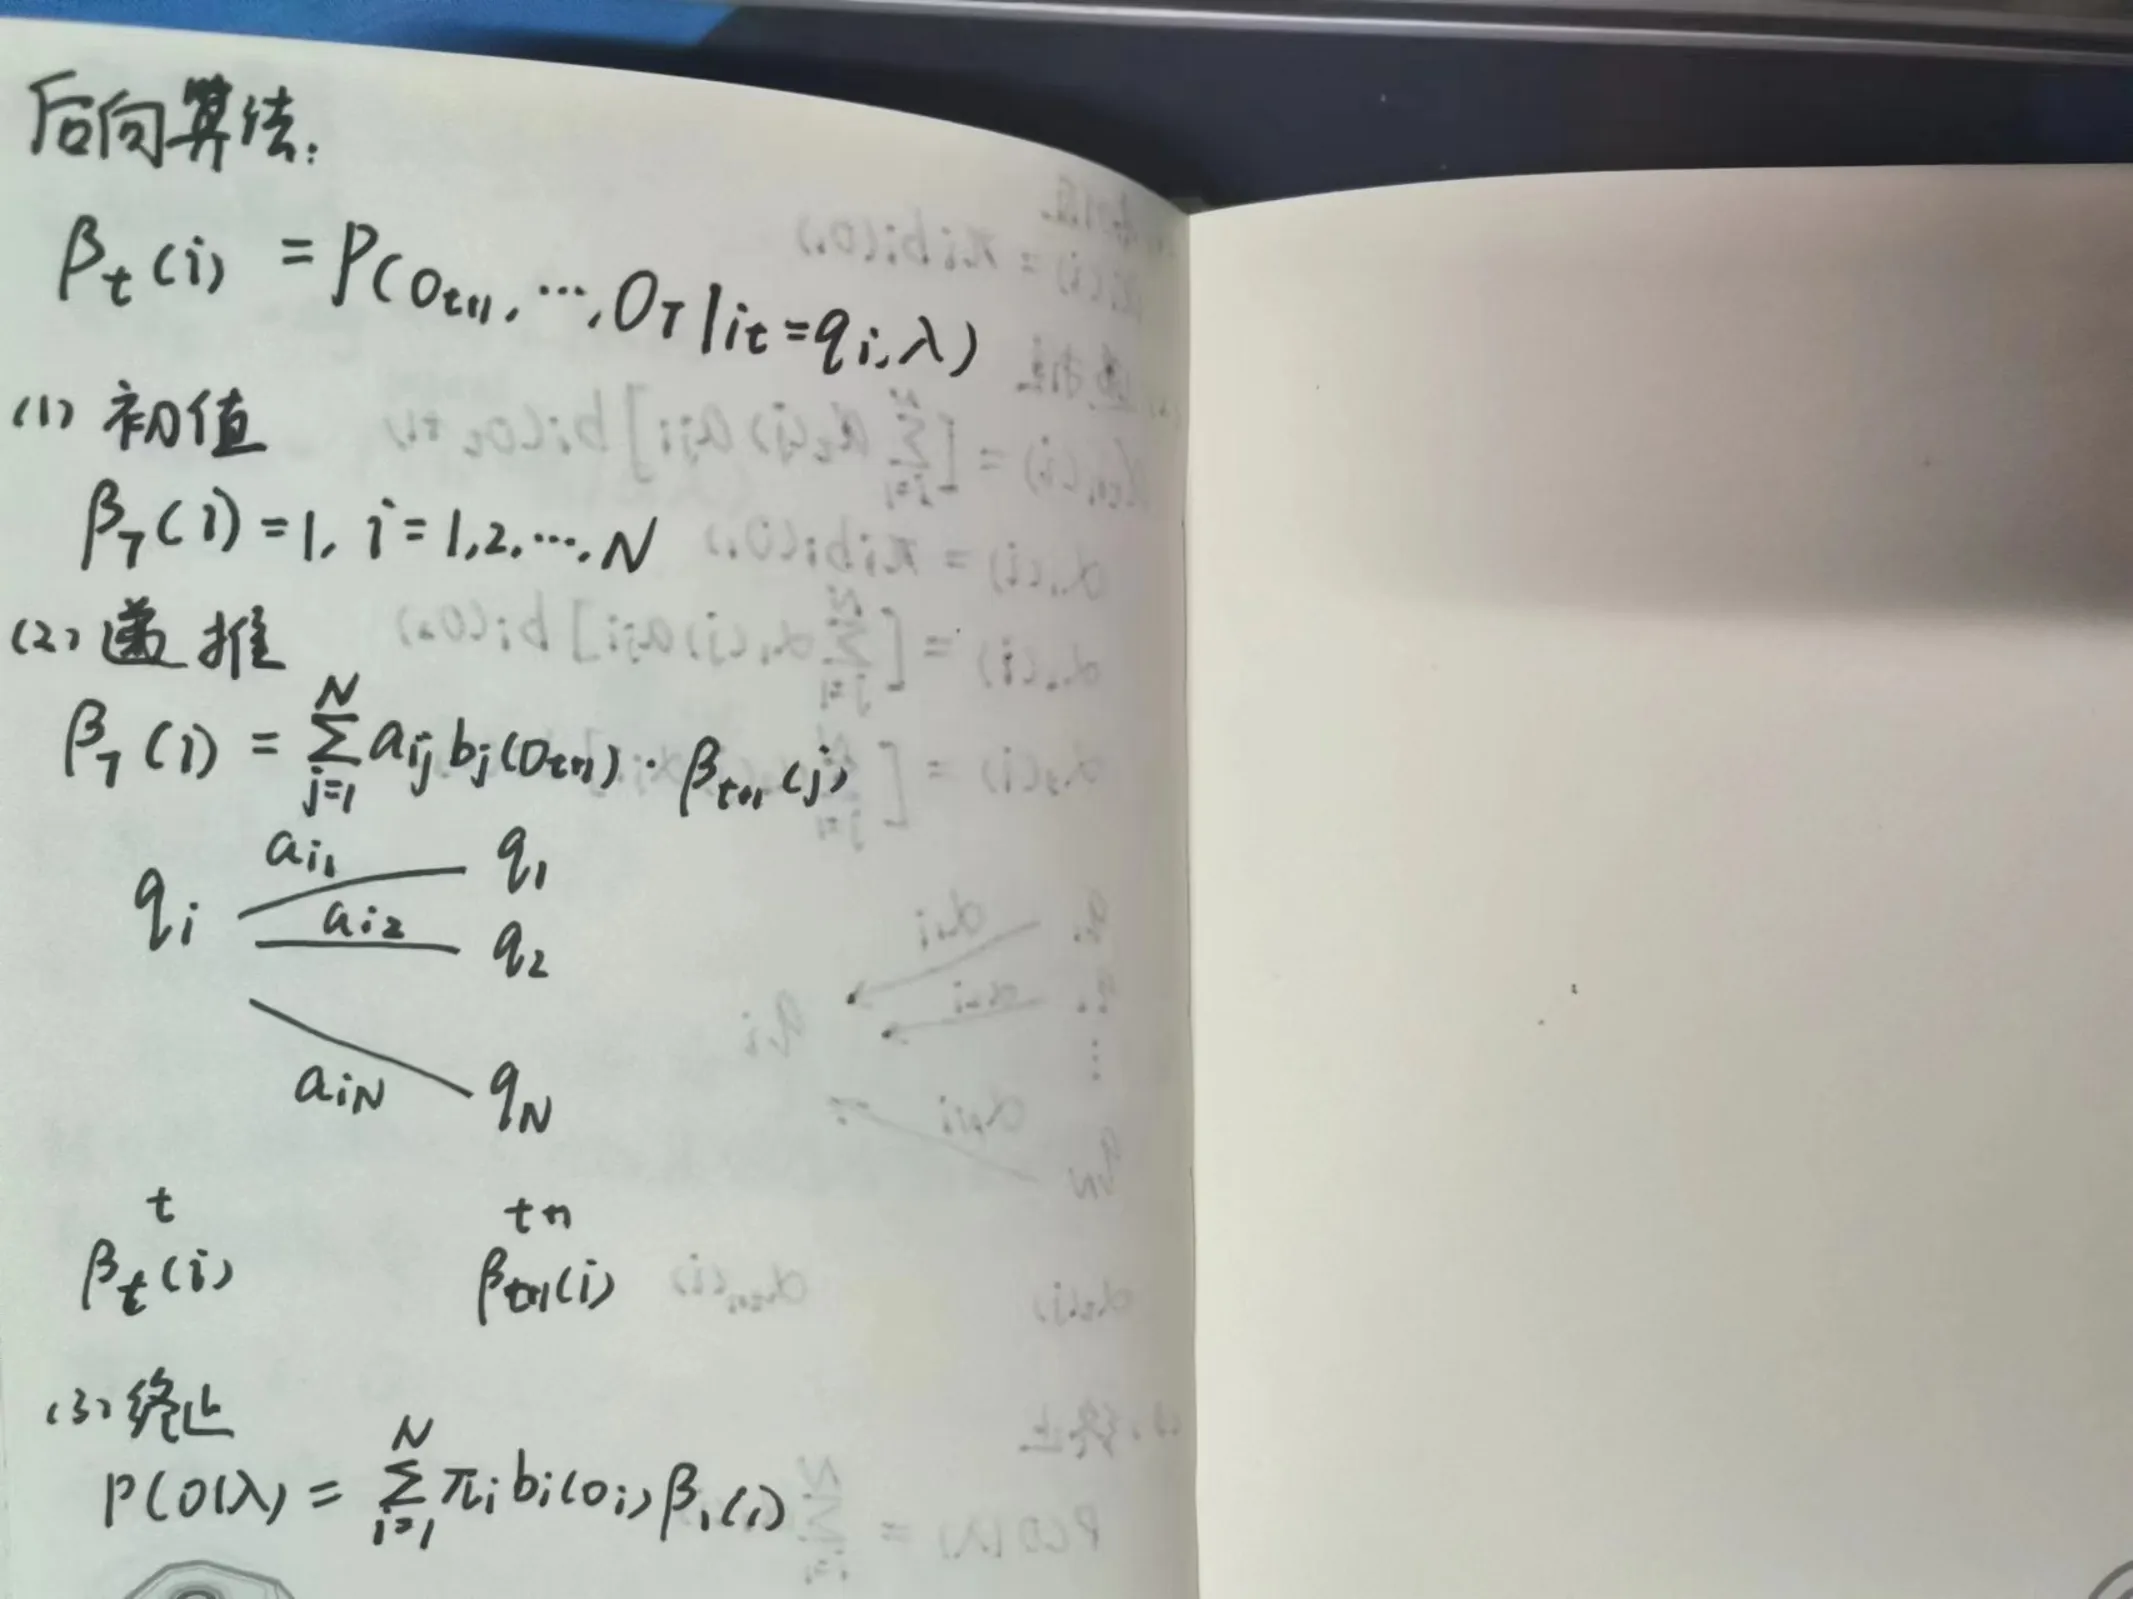 后向算法:
βₜ(i) = P(Oₜ₊₁, ···, O_T | iₜ = qᵢ, λ)
(1) 初值
β_T(i) = 1, i = 1,2, ···, N
(2) 递推
β_T(i) = Σ_{j=1}^{N} a_{ij} b_j(Oₜ₊₁) · βₜ₊₁(j)
a_{i1} q₁
qᵢ a_{i2} q₂
a_{iN} q_N
t t+1
βₜ(i) βₜ₊₁(i)
(3) 终止
P(O|λ) = Σ_{i=1}^{N} πᵢ bᵢ(oᵢ) β₁(i)